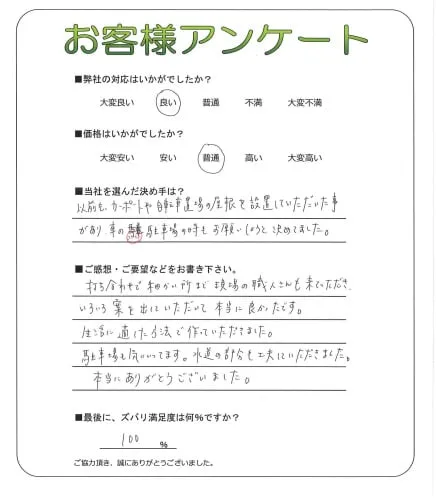 お客様アンケート
■弊社の対応はいかがでしたか？
大変良い 良い 普通 不満 大変不満
■価格はいかがでしたか？
大変安い 安い 普通 高い 大変高い
■当社を選んだ決め手は？
以前も、カーポートや自転車置場の屋根を設置していただいた事
があり 車の 駐車場の時もお願いしようと決めてました。
■ご感想・ご要望などをお書き下さい。
打ち合わせで細かい所まで現場の職人さんも来ていただき
いろいろ案を出していただいて本当に良かったです。
生活に適した方法で作っていただきました。
駐車場も気にいってます。水道の部分も工夫していただきました。
本当にありがとうございました。
■最後に、ズバリ満足度は何％ですか？
100 ％
ご協力頂き、誠にありがとうございました。